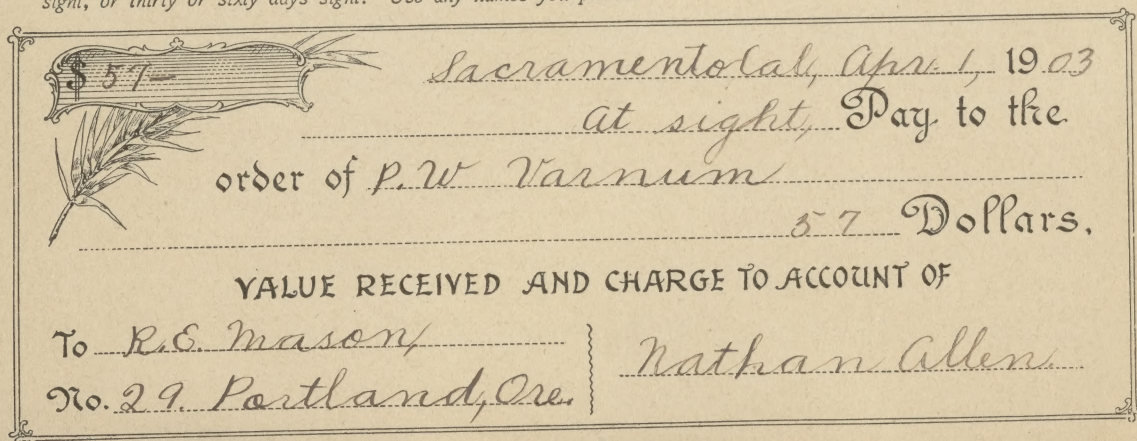 sight, or thirty or sixty days sight. Use any names you p
$ 57—
Sacramento Cal, Apr. 1, 1903
At sight, Pay to the
order of P. W Varnum
57 Dollars.
VALUE RECEIVED AND CHARGE TO ACCOUNT OF
To R.E. Mason,
No. 29. Portland, Ore.
Nathan Allen.